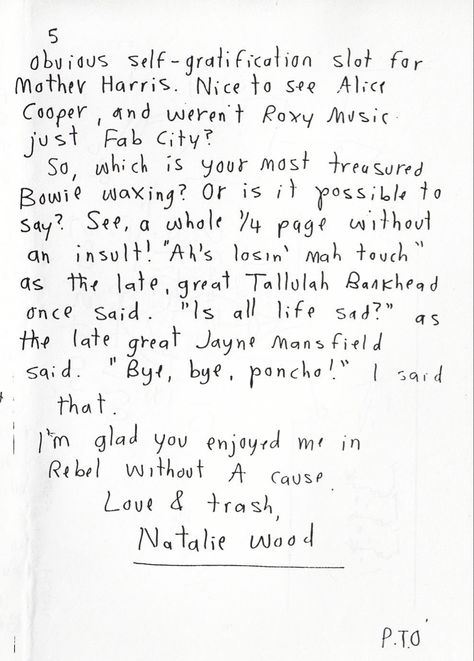 5
obvious self-gratification slot for
Mother Harris. Nice to see Alice
Cooper, and weren't Roxy Music
just Fab City?
So, which is your most treasured
Bowie waxing? Or is it possible to
say? See, a whole 1/4 page without
an insult! "Ah's losin' mah touch"
as the late, great Tallulah Bankhead
once said. "Is all life sad?" as
the late great Jayne Mansfield
said. "Bye, bye, poncho!" I said
that.
I'm glad you enjoyed me in
Rebel Without A Cause.
Love & trash,
Natalie Wood
P.T.O